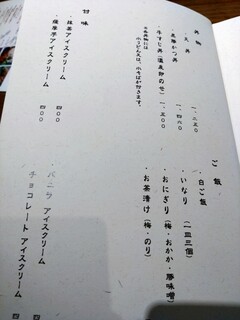 丼物
・天丼 一、二五〇
・黒豚かつ丼 一、四六〇
・牛すじ丼（温玉卵のせ） 一、三〇〇
※各丼物には
小うどん又は、小そばが付きます。
甘味
・抹茶アイスクリーム 四〇〇
・薩摩芋アイスクリーム 四〇〇
ご飯
・白ご飯
・いなり（一皿三個）
・おにぎり（梅・おかか・豚味噌）
・お茶漬け（梅・のり）
・バニラ アイスクリーム
チョコレート アイスクリーム